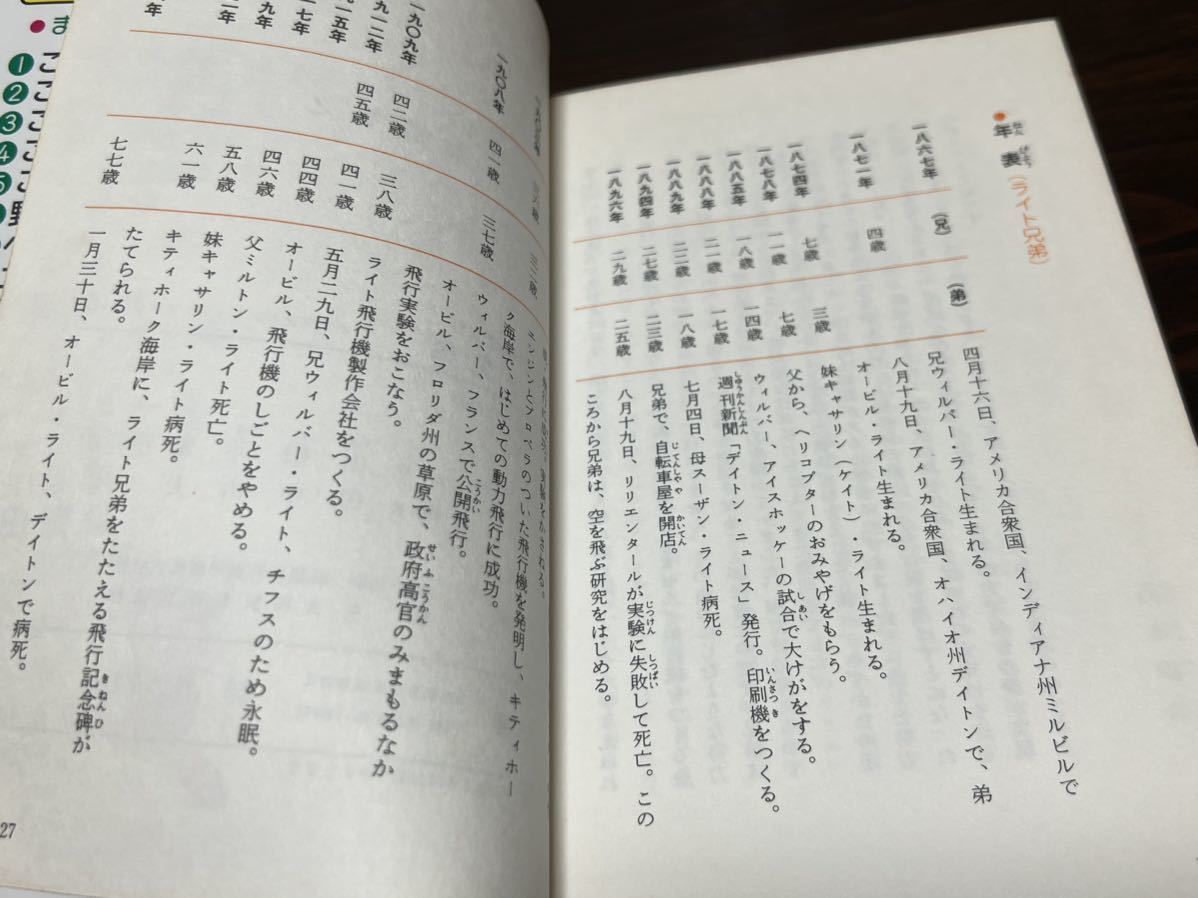 ●年表（ライト兄弟）
（兄）
（弟）
一八六七年
四月十六日、アメリカ合衆国、インディアナ州ミルビルで
兄ウィルバー・ライト生まれる。
一八七一年 四歳
八月十九日、アメリカ合衆国、オハイオ州デイトンで、弟
オービル・ライト生まれる。
一八七四年 七歳 三歳 妹キャサリン（ケイト）・ライト生まれる。
一八七八年 一一歳 七歳 父から、ヘリコプターのおみやげをもらう。
一八八五年 一八歳 一四歳 ウィルバー、アイスホッケーの試合で大けがをする。
一八八八年 二一歳 一七歳 週刊新聞「デイトン・ニュース」発行。印刷機をつくる。
一八八九年 二二歳 一八歳 七月四日、母スーザン・ライト病死。
一八九四年 二七歳 二三歳 兄弟で、自転車屋を開店。
一八九六年 二九歳 二五歳 八月十九日、リリエンタールが実験に失敗して死亡。この
ころから兄弟は、空を飛ぶ研究をはじめる。
エンジンとプロペラのついた飛行機を発明し、キティホー
ク海岸で、はじめての動力飛行に成功。
一九〇八年 四一歳 三七歳 ウィルバー、フランスで公開飛行。
オービル、フロリダ州の草原で、政府高官のみまもるなか
飛行実験をおこなう。
一九〇九年 四二歳 三八歳 ライト飛行機製作会社をつくる。
九一二年 四五歳 四一歳 五月二九日、兄ウィルバー・ライト、チフスのため永眠。
一五年 四四歳 オービル、飛行機のしごとをやめる。
一七年 四六歳 父ミルトン・ライト死亡。
九年 五八歳 妹キャサリン・ライト病死。
年 六一歳 キティホーク海岸に、ライト兄弟をたたえる飛行記念碑が
たてられる。
七七歳 一月三十日、オービル・ライト、デイトンで病死。
27
●ま
❶こ
❷こ
❸こ
❹こ
❺こ
野